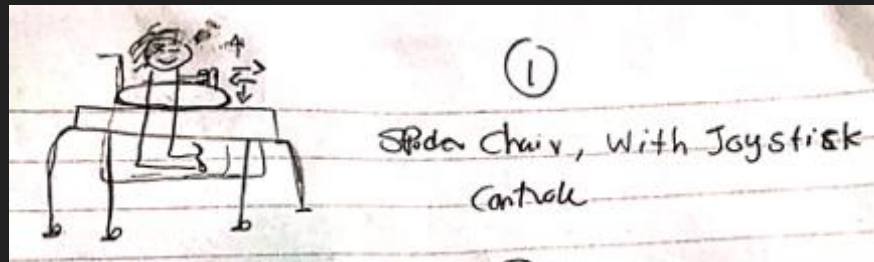 ①
Spider Chair, With Joystick
Controle